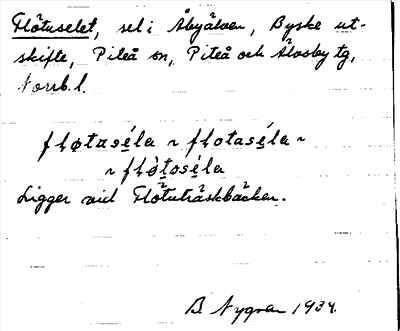 Flötuselet, sel i Åbyälven, Byske ut-
skifte, Piteå sn, Piteå och Älvsby tg,
Norrb. l.
fløtaséla ~ flotaséla ~
~ fløtoséla
Ligger vid Flötuträskbäcken.
B Nygren 1934.